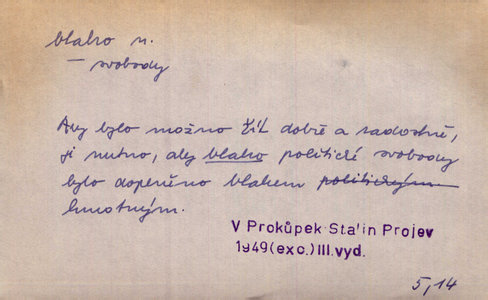 blaho n.
– svobody
Aby bylo možno žíti dobře a radostně,
je nutno, aby blaho politické svobody
bylo doplněno blahem politickým
hmotným.
V Prokůpek-Stalin Projev
1949(exc.)III.vyd.
5,14